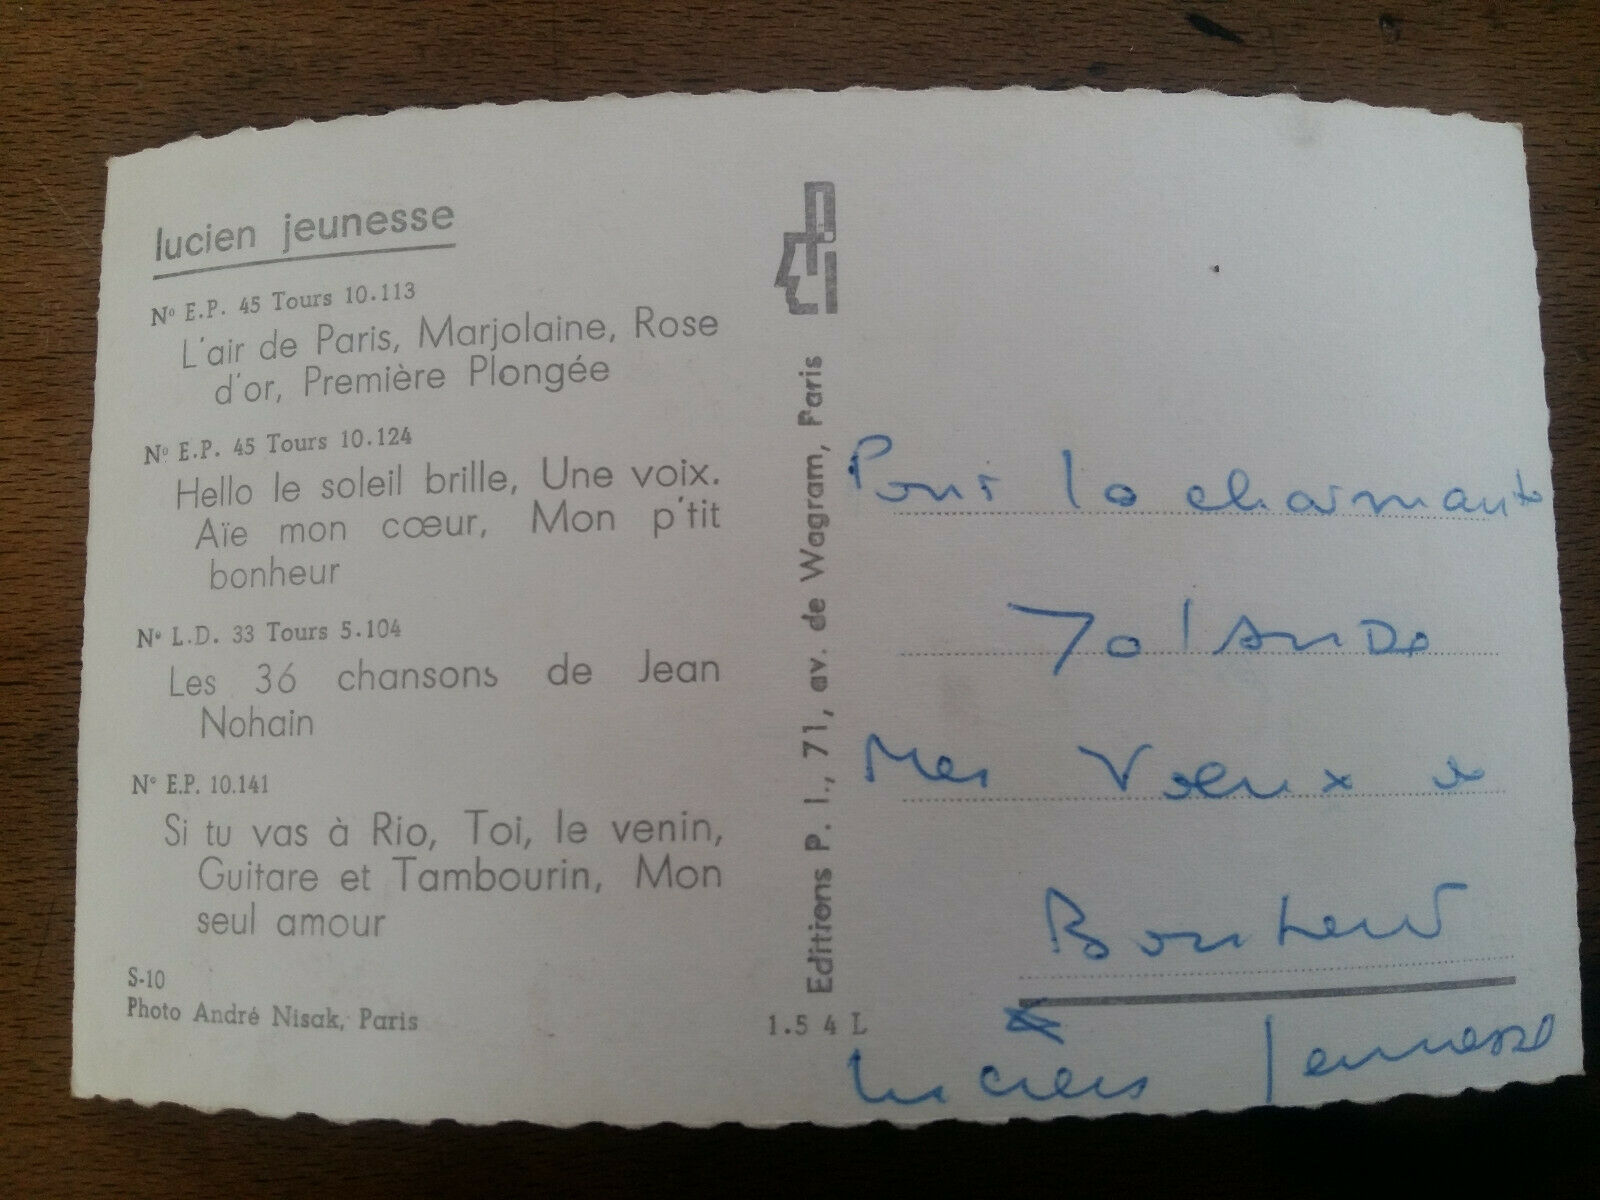 lucien jeunesse
Nº E.P. 45 Tours 10.113
L'air de Paris, Marjolaine, Rose
d'or, Première Plongée
Nº E.P. 45 Tours 10.124
Hello le soleil brille, Une voix.
Aïe mon cœur, Mon p'tit
bonheur
Nº L.D. 33 Tours 5.104
Les 36 chansons de Jean
Nohain
Nº E.P. 10.141
Si tu vas à Rio, Toi, le venin,
Guitare et Tambourin, Mon
seul amour
S-10
Photo André Nisak, Paris
Editions P. I., 71, av. de Wagram, Paris
1.5 4 L
Pour la charmante
Yolande
Mes Vœux de
Bonheur
Lucien Jeunesse